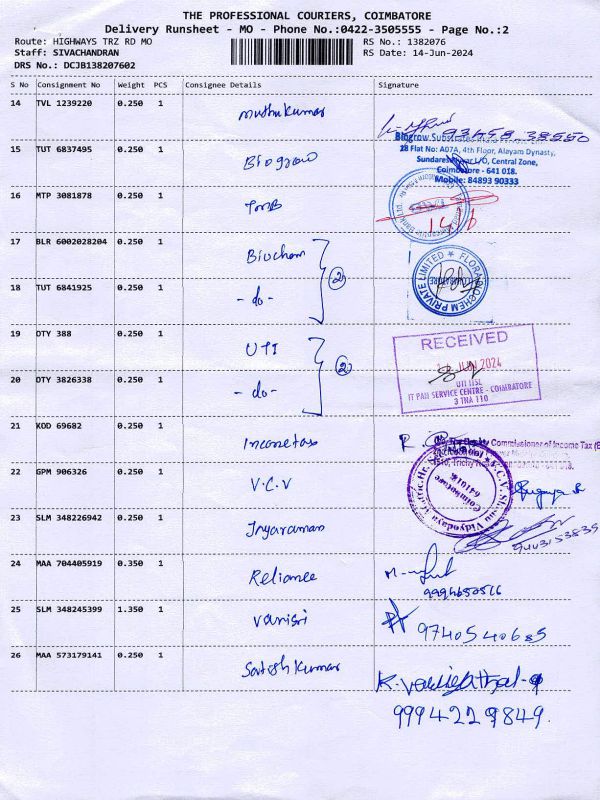 THE PROFESSIONAL COURIERS, COIMBATORE
Delivery Runsheet - MO - Phone No.:0422-3505555 - Page No.:2
Route: HIGHWAYS TRZ RD MO RS No.: 1382076
Staff: SIVACHANDRAN RS Date: 14-Jun-2024
DRS No.: DCJB138207602
S No Consignment No Weight PCS Consignee Details Signature
14 TVL 1239220 0.250 1 muthukumar 93458 38550
15 TUT 6837495 0.250 1 Bioggrow
Biogrow Substrates
28 Flat No: A07A, 4th Floor, Alayam Dynasty,
L/O, Central Zone,
Coimbatore - 641 018.
Mobile: 84893 90333
16 MTP 3081878 0.250 1 TMB
17 BLR 6002028204 0.250 1 Biochem
PRIVATE LIMITED ★ FLORA
18 TUT 6841925 0.250 1 - do - 2
19 DTY 388 0.250 1 UTI
RECEIVED
JUN 2024
UTI ITSL
IT PAN SERVICE CENTRE - COIMBATORE
3 TNA 110
20 DTY 3826338 0.250 1 - do - 2
21 KOD 69682 0.250 1 Incometax
Commissioner of Income Tax
22 GPM 906326 0.250 1 V.C.V
Coimbatore
23 SLM 348226942 0.250 1 Jayaraman
24 MAA 704405919 0.350 1 Reliance
25 SLM 348245399 1.350 1 vanisri 97405 40685
26 MAA 573179141 0.250 1 Satishkumar
9994229849.